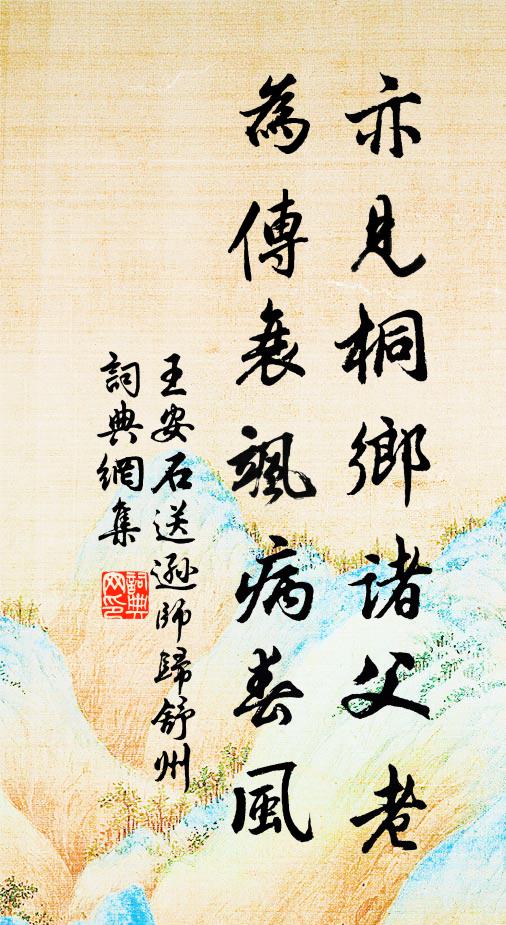 亦見桐鄉諸父老
為傳衰颯病春風
王安石送遜師歸舒州
詞典網集
詞典網印